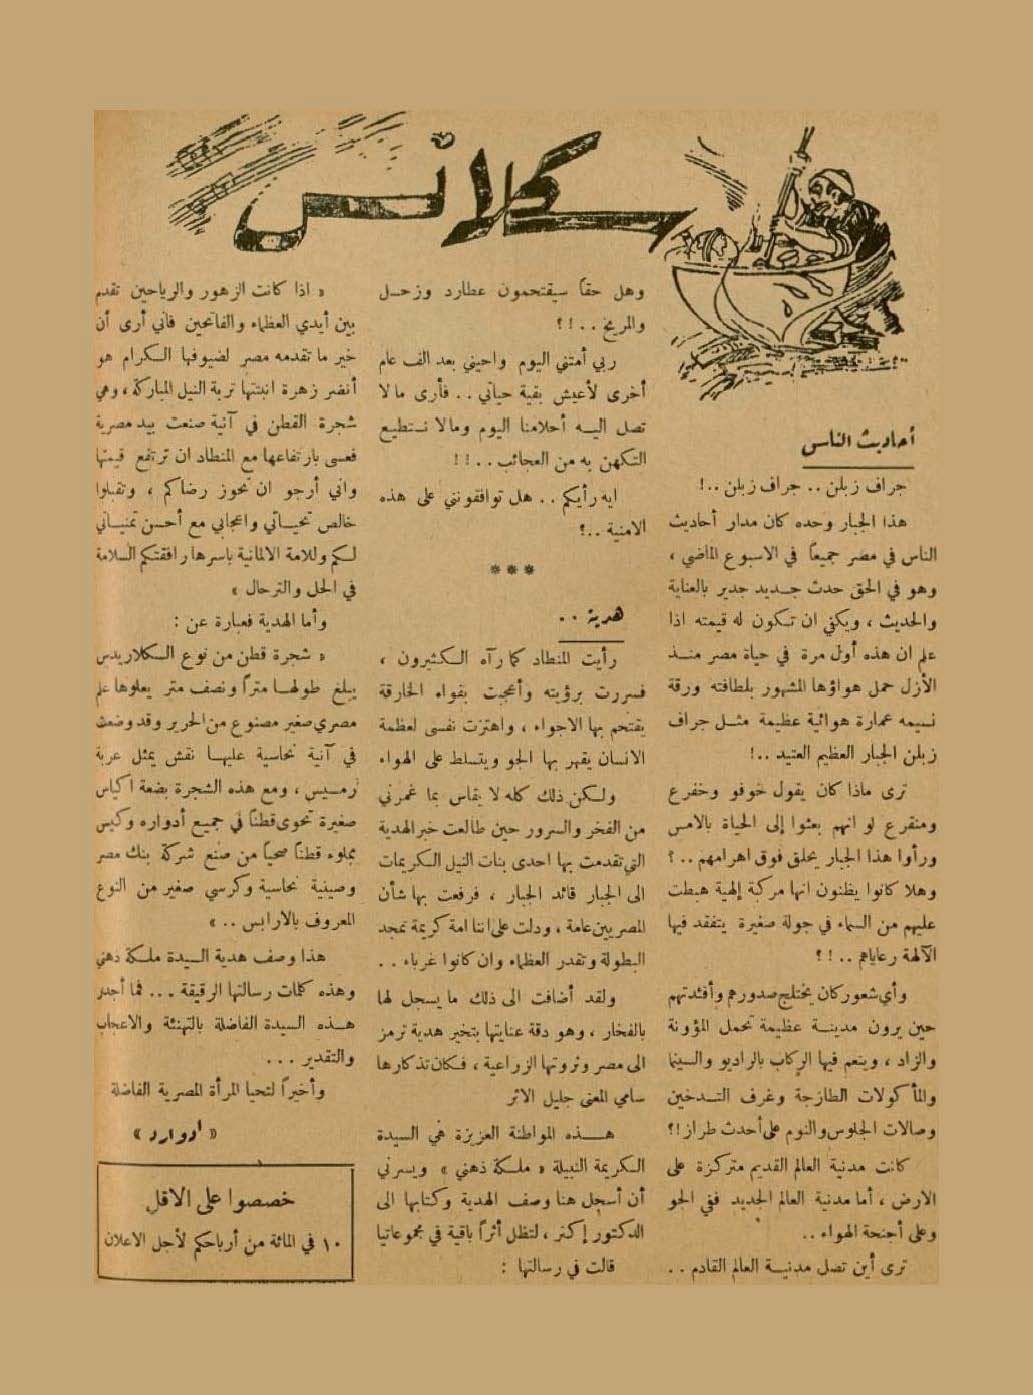 سكلانس
أحاديث الناس
جراف زبلن .. جراف زبلن ..!
هذا الجبار وحده كان مدار أحاديث
الناس في مصر جميعاً في الاسبوع الماضي ،
وهو في الحق حدث جديد جدير بالعناية
والحديث ، ويكفي ان تكون له قيمته اذا
علم ان هذه أول مرة في حياة مصر منذ
الأزل حمل هواؤها المشهور بلطافته ورقة
نسيمه عمارة هوائية عظيمة مثل جراف
زبلن الجبار العظيم العتيد ..!
ترى ماذا كان يقول خوفو وخفرع
ومنقرع لو انهم بعثوا إلى الحياة بالامس
ورأوا هذا الجبار يحلق فوق اهرامهم ..؟
وهلا كانوا يظنون انها مركبة إلهية هبطت
عليهم من السماء في جولة صغيرة يتفقد فيها
الآلهة رعاياهم ..!؟
وأي شعور كان يختلج صدورهم وأفئدتهم
حين يرون مدينة عظيمة تحمل المؤونة
والزاد ، وينعم فيها الركاب بالراديو والسينما
والمأكولات الطازجة وغرف التدخين
وصالات الجلوس والنوم على أحدث طراز !؟
كانت مدنية العالم القديم متركزة على
الارض ، أما مدنية العالم الجديد ففي الجو
وعلى أجنحة الهواء ..
ترى أين تصل مدنية العالم القادم ..
وهل حقاً سيقتحمون عطارد وزحل
والمريخ ..!؟
ربي أمتني اليوم واحيني بعد الف عام
أخرى لأعيش بقية حياتي .. فأرى ما لا
تصل اليه أحلامنا اليوم وما لا نستطيع
التكهن به من العجائب ..!!
ايه رأيكم .. هل توافقونني على هذه
الامنية ..؟
***
هدية ..
رأيت المنطاد كما رآه الكثيرون ،
فسررت برؤيته وأعجبت بقواه الخارقة
يقتحم بها الاجواء ، واهتزت نفسى لعظمة
الانسان يقهر بها الجو ويتسلط على الهواء
ولكن ذلك كله لا يقاس بما غمرني
من الفخر والسرور حين طالعت خبر الهدية
التي تقدمت بها احدى بنات النيل الكريمات
الى الجبار قائد الجبار ، فرفعت بها شأن
المصريين عامة ، ودلت على اننا امة كريمة تمجد
البطولة وتقدر العظماء وان كانوا غرباء ..
ولقد أضافت الى ذلك ما يسجل لها
بالفخار ، وهو دقة عنايتها بتخير هدية ترمز
الى مصر وثروتها الزراعية ، فكان تذكارها
سامي المعنى جليل الاثر
هذه المواطنة العزيزة هي السيدة
الكريمة النبيلة « ملكة ذهني » ويسرني
أن أسجل هنا وصف الهدية وكتابها الى
الدكتور إكنر ، لتظل أثراً باقية في مجموعاتيا
قالت في رسالتها :
« اذا كانت الزهور والرياحين تقدم
بين أيدي العظماء والفاتحين فاني أرى أن
خير ما تقدمه مصر لضيوفها الكرام هو
أنضر زهرة انبتتها تربة النيل المباركة ، وهي
شجرة القطن في آنية صنعت بيد مصرية
فعسى بارتفاعها مع المنطاد ان ترتفع قيمتها
واني أرجو ان تحوز رضاكم ، وتقبلوا
خالص تحياتي واعجابي مع أحسن تمنياتي
لكم وللامة الالمانية باسرها رافقتكم السلامة
في الحل والترحال »
وأما الهدية فعبارة عن :
« شجرة قطن من نوع السكلاريدس
يبلغ طولها متراً ونصف متر يعلوها علم
مصري صغير مصنوع من الحرير وقد وضعت
في آنية نحاسية عليها نقش يمثل عربة
رمسيس ، ومع هذه الشجرة بضعة اكياس
صغيرة تحوى قطناً في جميع أدواره وكيس
مملوء قطناً صحياً من صنع شركة بنك مصر
وصينية نحاسية وكرسي صغير من النوع
المعروف بالارابس .. »
هذا وصف هدية السيدة ملكة ذهني
وهذه كلمات رسالتها الرقيقة ... فما أجدر
هذه السيدة الفاضلة بالتهنئة والاعجاب
والتقدير ...
وأخيراً لتحيا المرأة المصرية الفاضلة
« ادوارد »
خصصوا على الاقل
١٠ في المائة من أرباحكم لأجل الاعلان